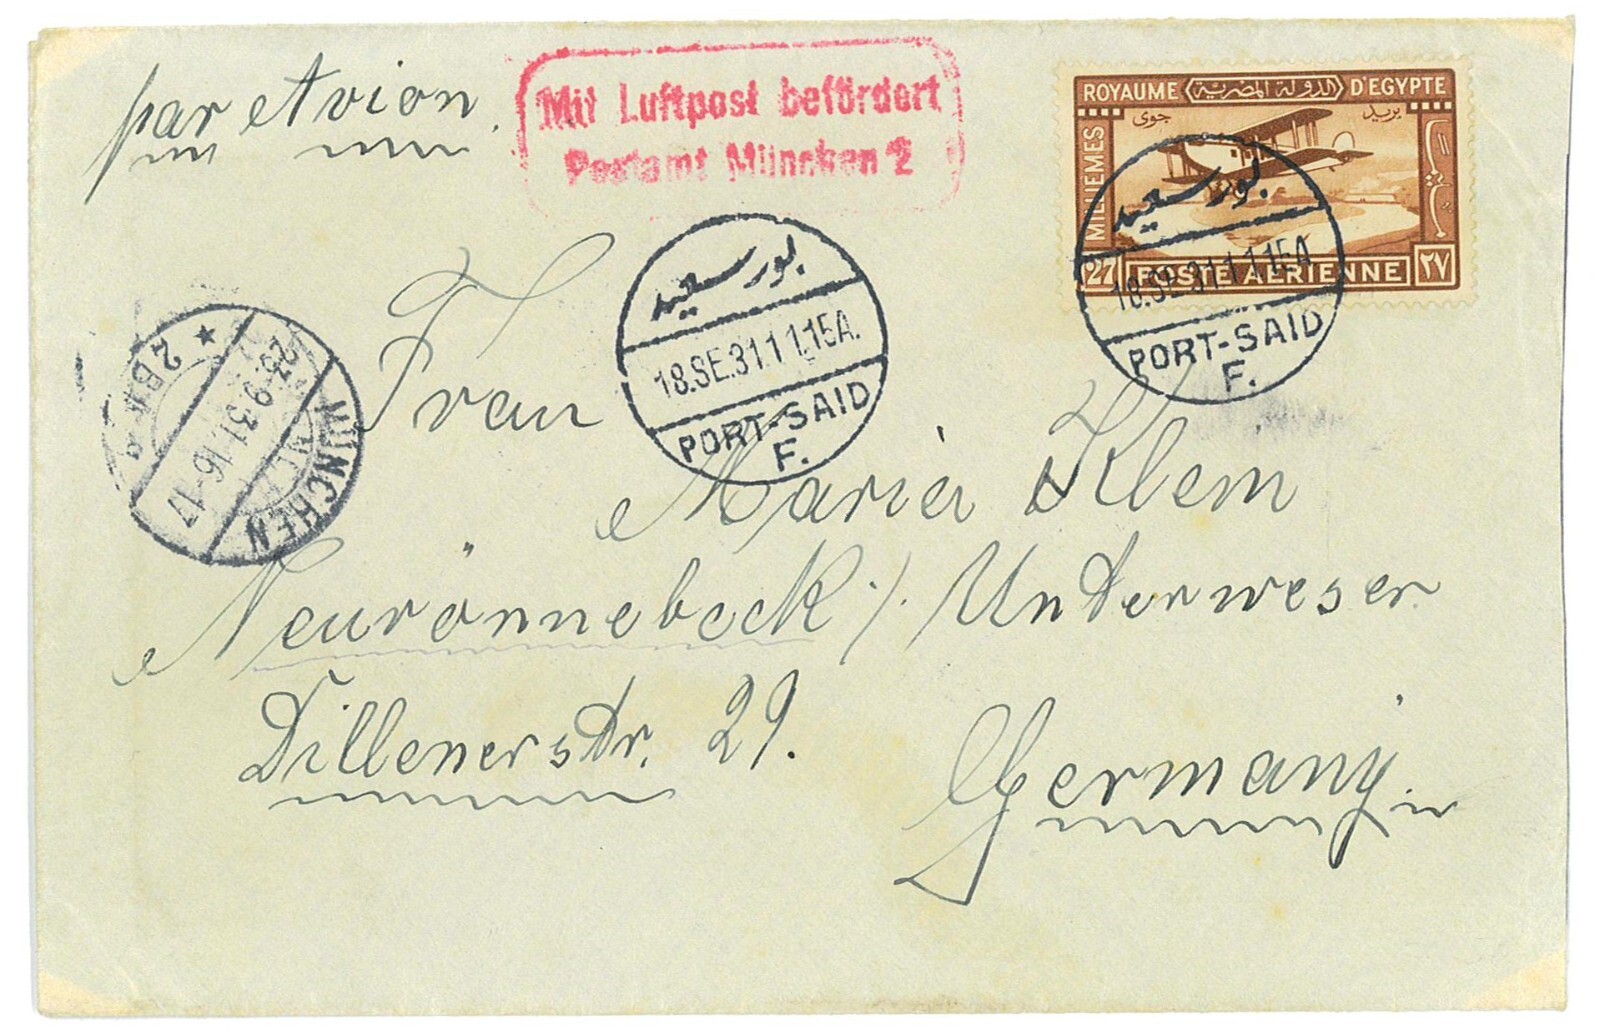 par Avion.
Mit Luftpost befördert
Postamt München 2
ROYAUME الدولة المصرية D'EGYPTE
بريد جوى
MILLIEMES
27 POSTE AERIENNE ٢٧
بور سعيد
18.SE.31 11.15A
PORT-SAID
F.
بور سعيد
18.SE.31 11.15A.
PORT-SAID
F.
MÜNCHEN
23.-9.31.16-17
* 2 B.P.
Frau
Maria Klem
Neurönnebeck / Underweser
Dillenerstr. 29.
Germany